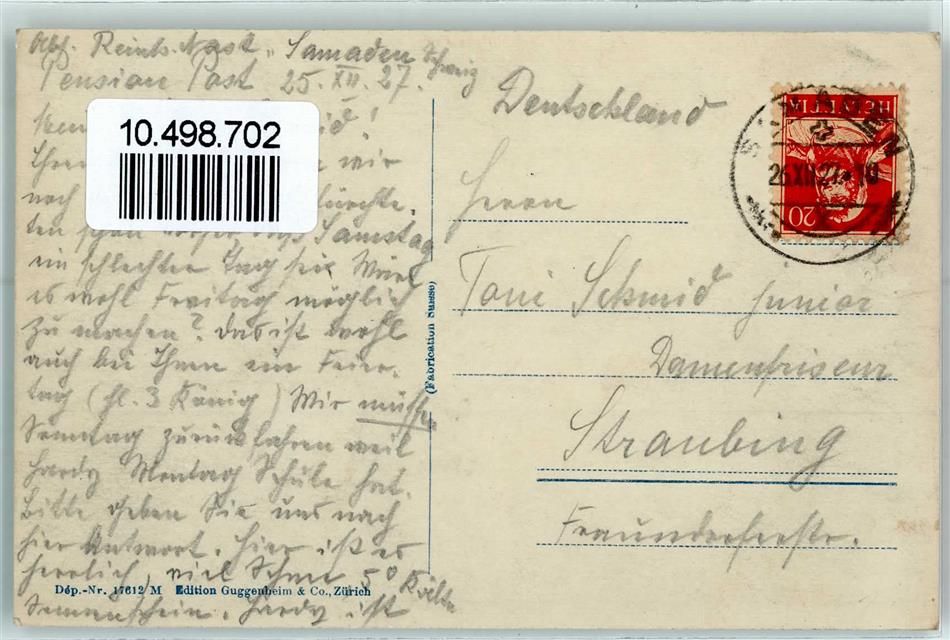 Reints Samaden Schweiz
Pension Post 25.XII.27.
10.498.702
wir
noch
ten schon Samstag
ein schlechter Tag sei. Wäre
es wohl Freitag möglich
zu machen? Das ist wohl
auch bei Ihnen ein Feier-
tag (hl. 3 König) Wir müssen
Sonntag zurückfahren weil
Hardy Montag Schule hat.
Bitte geben Sie uns nach
hier Antwort. Hier ist es
herrlich, viel Schnee 5° Kälte
Sonnenschein. Hardy ist
Dép.-Nr. 17612 M Edition Guggenheim & Co., Zürich
(Fabrication Suisse)
Deutschland
Herrn
Toni Schmid junior
Damenfriseur
Straubing
Fraunhoferstr.
HELVETIA
20
26.XII.27